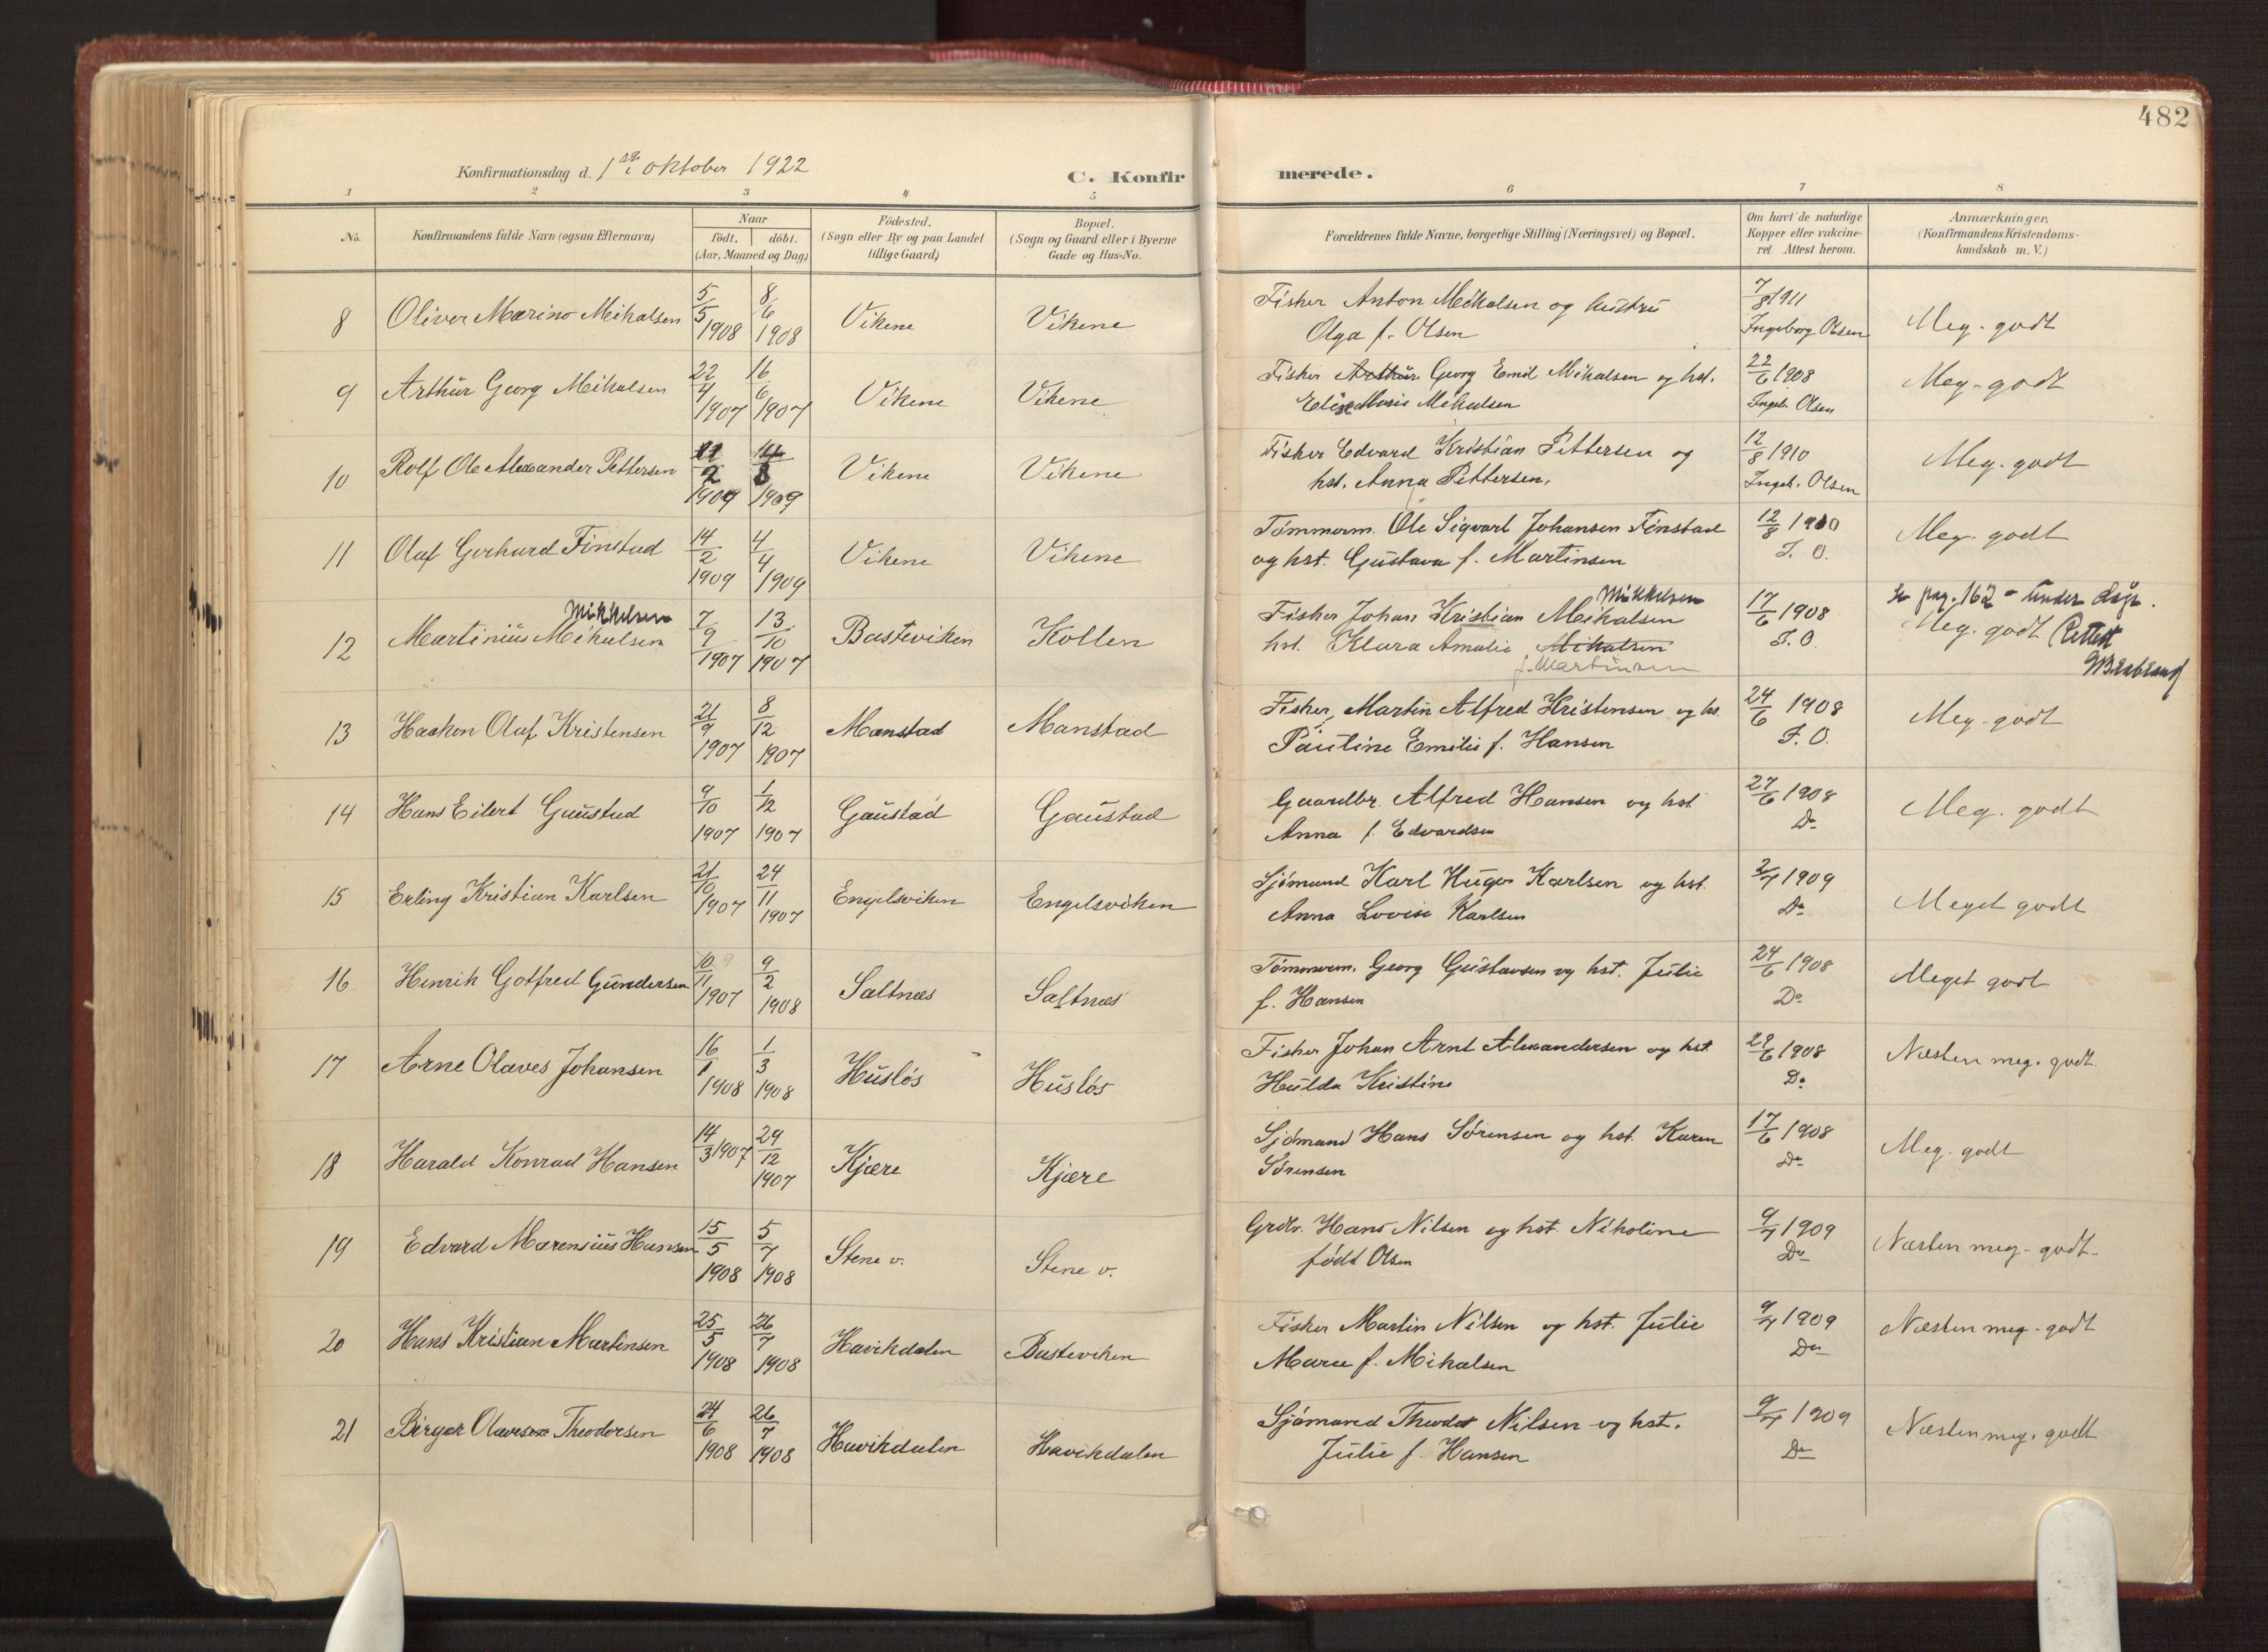 482
Konfirmationsdag d. 1ste oktober 1922
C. Konfirmerede.
1 2 3 4 5 6 7 8
No.
Konfirmandens fulde Navn (ogsaa Efternavn)
Naar
födt. döbt.
(Aar, Maaned og Dag)
Födested.
(Sogn eller By og paa Landet
tillige Gaard)
Bopæl.
(Sogn og Gaard eller i Byerne
Gade og Hus-No.
Forældrenes fulde Navne, borgerlige Stilling (Næringsvei) og Bopæl.
Om havt de naturlige
Kopper eller vakcine-
ret. Attest herom.
Anmærkninger.
(Konfirmandens Kristendoms-
kundskab m. V.)
8 Oliver Marino Mikalsen 5/5 1908 8/6 1908 Vikene Vikene Fisker Anton Mikalsen og hustru
Olga f. Olsen 7/8 1911 Ingeborg Olsen Meg. godt
9 Arthur Georg Mikalsen 22/4 1907 16/6 1907 Vikene Vikene Fisker Arthur Georg Emil Mikalsen og hst.
Elise Marie Mikalsen 22/6 1908 Ingeb. Olsen Meg. godt
10 Rolf Ole Alexander Pettersen 2 1909 1909 Vikene Vikene Fisker Edvard Kristian Pettersen og
hst. Anna Pettersen. 12/8 1910 Ingeb. Olsen Meg. godt
11 Olaf Gerhard Finstad 14/2 1909 4/4 1909 Vikene Vikene Tömmerm. Ole Sigvart Johansen Finstad
og hst. Gustava f. Martinsen 12/8 1910 I. O. Meg. godt
Mikkelsen
12 Martinius Mikalsen 7/9 1907 13/10 1907 Basteviken Kollen
Mikkelsen
Fisker Johan Kristian Mikalsen
hst. Klara Amalie Mikalsen
f. Martinsen
17/6 1908 I. O.
Se pag. 162 - under dåp.
Meg. godt Rettet
13 Haakon Olaf Kristensen 21/9 1907 8/12 1907 Manstad Manstad Fisker, Martin Alfred Kristensen og hs.
Pauline Emilie f. Hansen 24/6 1908 I. O. Meg. godt
14 Hans Eilert Gaustad 9/10 1907 1/12 1907 Gaustad Gaustad Gaardbr. Alfred Hansen og hst
Anna f. Edvardsen 27/6 1908 Do Meg. godt
15 Erling Kristian Karlsen 21/10 1907 24/11 1907 Engelsviken Engelsviken Sjömand Karl Hugo Karlsen og hst.
Anna Lovise Karlsen 2/7 1909 Do Meget godt
16 Henrik Gotfred Gundersen 10/11 1907 9/2 1908 Saltnæs Saltnæs Tömmerm. Georg Gustavsen og hst. Julie
f. Hansen 24/6 1908 Do Meget godt
17 Arne Olaves Johansen 16/1 1908 1/3 1908 Huslös Huslös Fisker Johan Arnt Alexandersen og hst
Hulda Kristine 29/6 1908 Do Næsten meg. godt.
18 Harald Konrad Hansen 14/3 1907 29/12 1907 Kjære Kjære Sjömand Hans Sörensen og hst. Karen
Sörensen 17/6 1908 Do Meg. godt
19 Edvard Marensius Hansen 15/5 1908 5/7 1908 Stene v. Stene v. Grdbr. Hans Nilsen og hst. Nikoline
född Olsen 9/7 1909 Do Næsten meg. godt.
20 Hans Kristian Martinsen 25/5 1908 26/7 1908 Havikdalen Basteviken Fisker Martin Nilsen og hst. Julie
Marie f. Mikalsen 9/7 1909 Do Næsten meg. godt
21 Birger Theodorsen 24/6 1908 26/7 1908 Havikdalen Havikdalen Sjömand Theodor Nilsen og hst.
Julie f. Hansen 9/7 1909 Do Næsten meg. godt